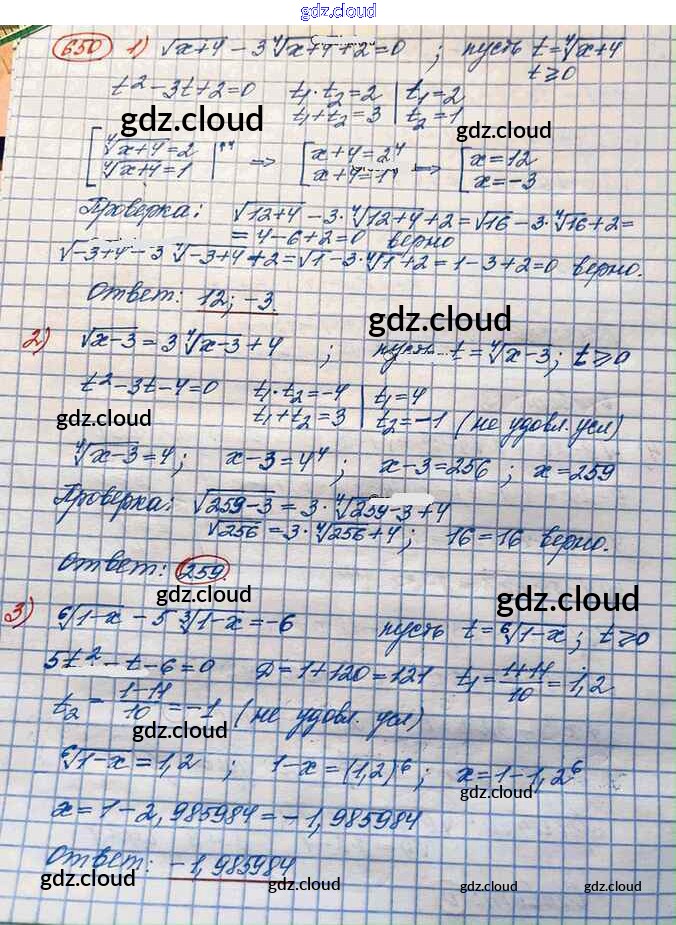 gdz.cloud
650 1) √x+4 − 3⁴√x+4 + 2 = 0 ; пусть t = ⁴√x+4
t ≥ 0
t² − 3t + 2 = 0 t₁·t₂ = 2 | t₁ = 2
t₁ + t₂ = 3 | t₂ = 1
gdz.cloud
[ ⁴√x+4 = 2 => [ x+4 = 2⁴ => [ x = 12
⁴√x+4 = 1 x+4 = 1⁴ x = −3
Проверка: √12+4 − 3·⁴√12+4 + 2 = √16 − 3·⁴√16 + 2 =
= 4 − 6 + 2 = 0 верно
√−3+4 − 3 ⁴√−3+4 + 2 = √1 − 3·⁴√1 + 2 = 1 − 3 + 2 = 0 верно.
Ответ: 12; −3.
gdz.cloud
2) √x−3 = 3 ⁴√x−3 + 4 ; пусть t = ⁴√x−3 ; t ≥ 0
t² − 3t − 4 = 0 t₁·t₂ = −4 | t₁ = 4
gdz.cloud t₁ + t₂ = 3 | t₂ = −1 (не удовл. усл)
gdz.cloud
⁴√x−3 = 4 ; x−3 = 4⁴ ; x−3 = 256 ; x = 259
Проверка: √259−3 = 3·⁴√259−3 + 4
√256 = 3·⁴√256 + 4 ; 16 = 16 верно.
Ответ: 259.
gdz.cloud gdz.cloud
3) ⁶√1−x − 5 ³√1−x = −6 пусть t = ⁶√1−x ; t ≥ 0
5t² − t − 6 = 0 D = 1 + 120 = 121 t₁ = 1+11/10 = 1,2
t₂ = 1−11/10 = −1 (не удовл. усл)
gdz.cloud
⁶√1−x = 1,2 ; 1−x = (1,2)⁶ ; x = 1 − 1,2⁶
gdz.cloud
x = 1 − 2,985984 = −1,985984
Ответ: −1,985984
gdz.cloud gdz.cloud gdz.cloud gdz.cloud